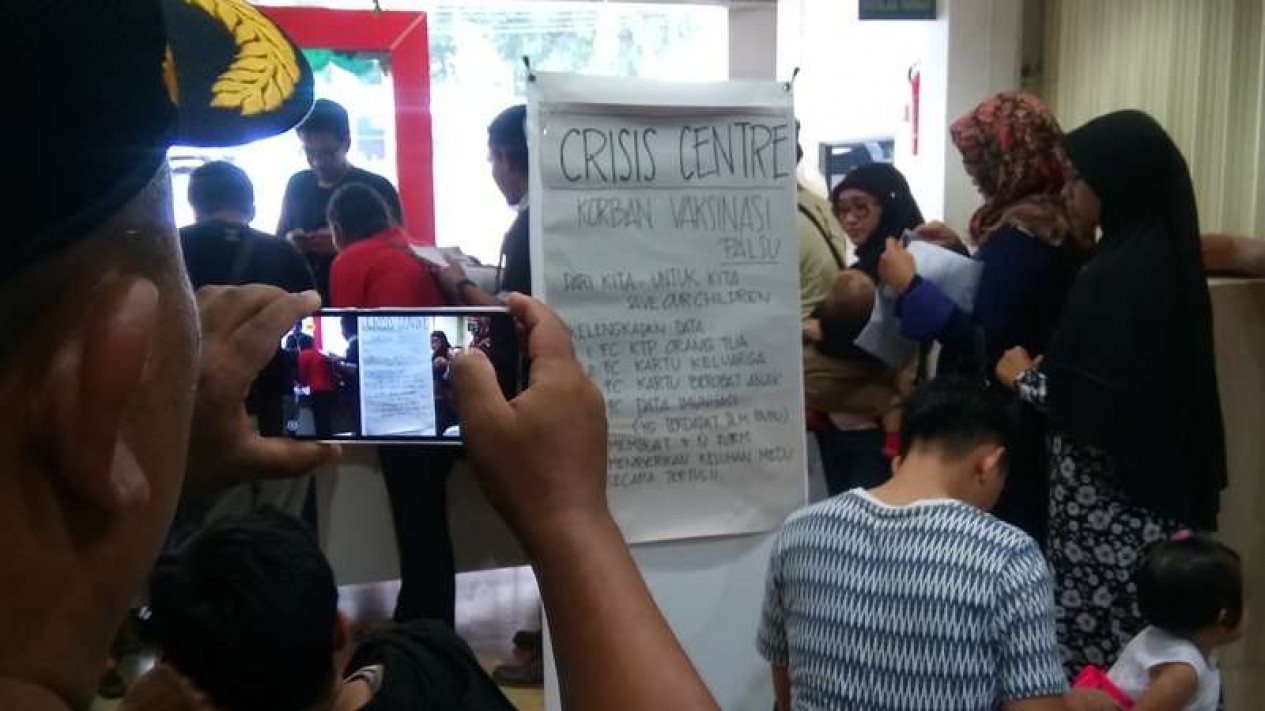 CRISIS CENTRE
KORBAN VAKSINASI
PALSU
DARI KITA - UNTUK KITA
SAVE OUR CHILDREN
KELENGKAPAN DATA
FC KTP ORANG TUA
FC KARTU KELUARGA
FC KARTU BEROBAT ANAK
FC DATA IMUNISASI
(YG TERDAPAT DLM BUKU)
MEMBUAT
MEMBERIKAN KELUHAN
SECARA TERTULIS